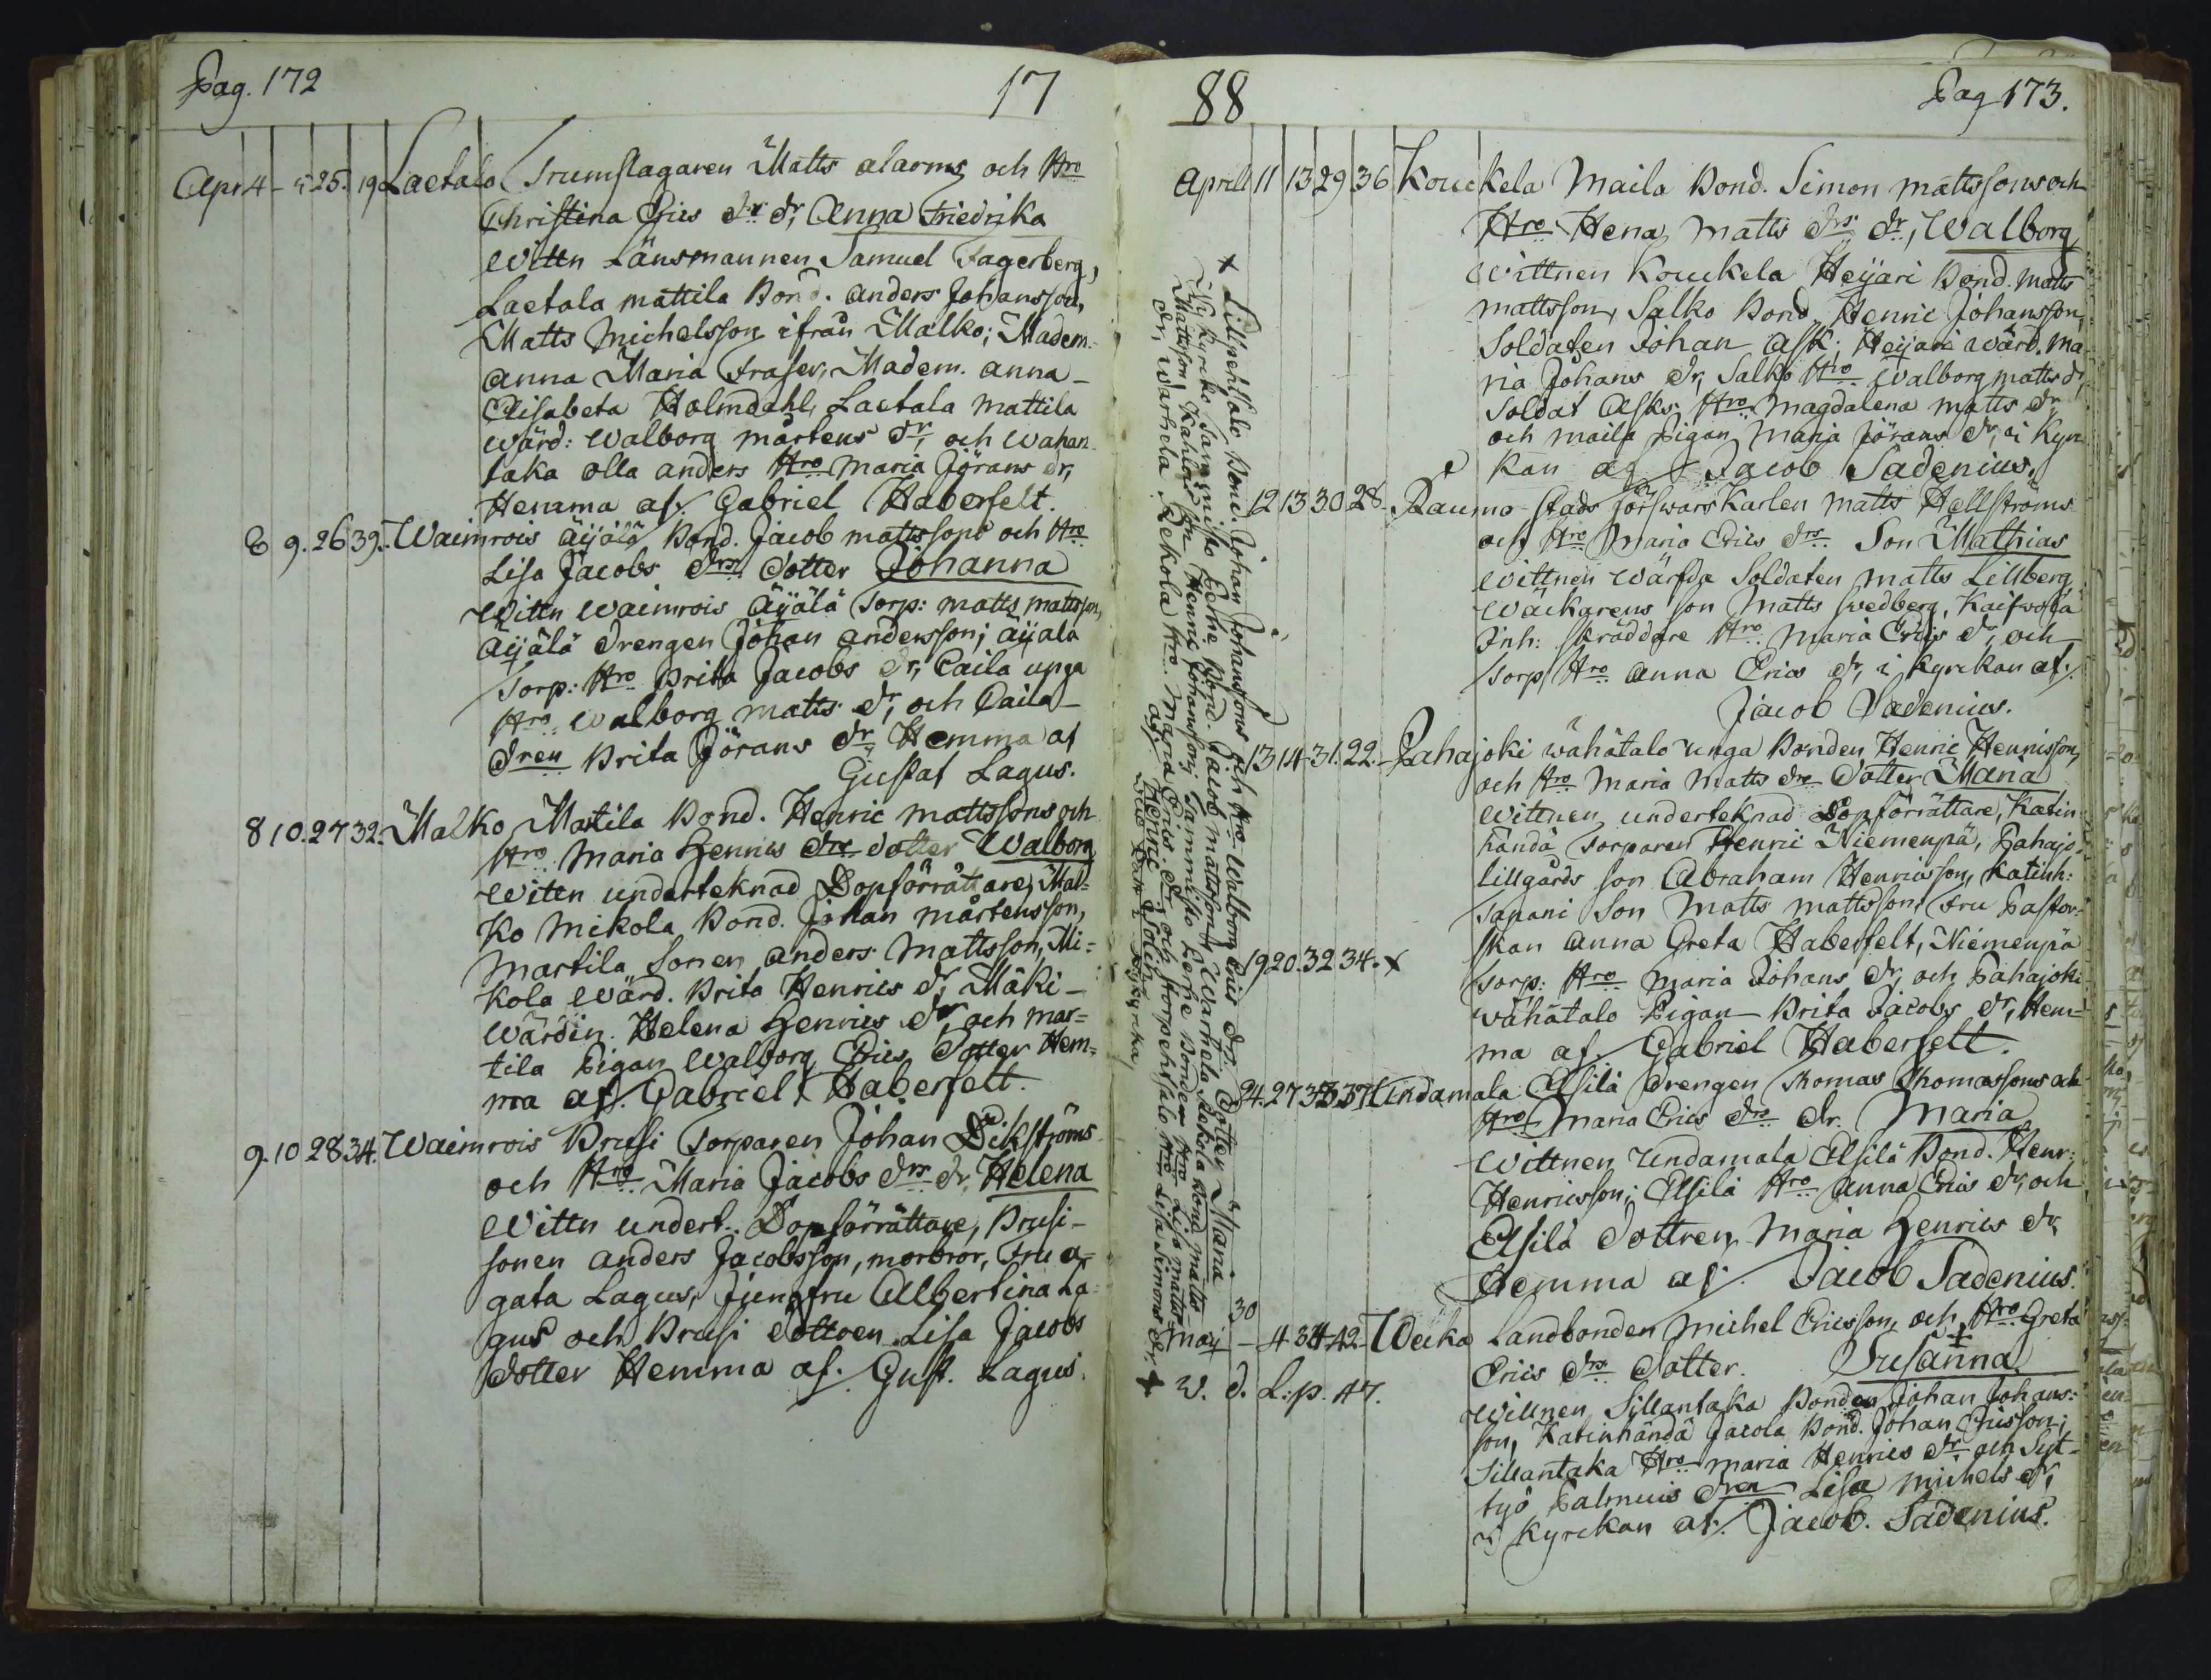 Pag. 172
17
Apr 4 - 5 25. 19 Laetala Trumslagaren Matts alarms och Hro
Christina Erics dr dr, Anna Friedrika
Wittn Länsmannen Samuel Fagerberg,
Laetala mattila Bond. anders Johansson,
Matts Michelsson ifrån Malko; Madem.
anna Maria Fraser, Madem. anna-
Elisabeta Holmdahl, Laetala Mattila
Wärd: Walborg mårtens dr, och Wahan
taka olla anders Hro Maria Jörans dr,
Hemma af. Gabriel Haberfelt.
8 9. 26 39. Waimrois Äijälä Bond. Jacob mattssons och Hro
Lisa Jacobs drs dotter Johanna
Wittn Waimrois Äijälä Torp: matts mattsson,
Äijälä drengen Johan andersson; äijälä
Torp: Hro Brita Jacobs dr, Caila unga
Hro Walborg matts dr, och Caila-
dren Brita Jörans dr Hemma af
Gustaf Lagus.
8 10. 27 32. Malko Martila Bond. Henric mattssons och
Hro Maria Henrics drs dotter Walborg
Witten underteknad Dopförrättare, Mal=
ko Mikola Bond. Johan mårtensson,
Martila Sonen anders Mattsson, Mi=
kola Wärd. Brita Henrics dr, Mäki-
wärdin. Helena Henrics dr, och mar=
tila Pigan Walborg Erics dotter Hem=
ma af. Gabriel Haberfelt.
9. 10 28 34. Waimrois Brusi Torparen Johan Dikströms
och Hro Maria Jacobs drs dr, Helena
Wittn undert. Dopförrättare, Brusi-
sonen anders Jacobsson, morbror, Fru a=
gata Lagus, Jungfru Albertina La=
gus och Brusi dottren Lisa Jacobs
dotter Hemma af. Gust. Lagus.
88
Pag 173.
Aprill 11 13 29 36 Kouckela Maila Bond. Simon mattssons och
Hro Hena Matts drs dr, Walborg
Wittnen Kouckela Heijari Bond. Matts
mattsson, Salko Bond Henric Johansson,
Soldaten Johan Ask; Heijari wärd. Ma
ria Johans dr, Salko Hro Walborg matts dr,
Soldat Asks Hro Magdalena matts dr
och maila Pigan Maria Jörans dr, i Kyrc
kan af Jacob Sadenius.
12 13 30 28. Raumo Stads försvars Karlen Matts Hellströms
och Hro Maria Erics drs Son Mathias
Wittnen Wärfda Soldaten Matts Lillberg
Wäckarens son Matts Svedberg, Kaifwola
Inh: Skräddare Hro Maria Erics dr, och
Torp Hro Anna Erics dr, i kyrckan af.
Jacob Sadenius.
13 14 31. 22. Pahajoki wähätalo unga Bonden Henric Henricsson,
och Hro Maria Matts drs Dotter Maria
Wittnen underteknad Dopförrättare, Katin
händä Torparen Henric Niemenpä, Pahajo.
Lillgårds son Abraham Henricsson, Katinh:
Tapani Son Matts mattsson, Fru Pastor-
skan Anna Greta Haberfelt, Niemenpä
Torp: Hro Maria Johans dr, och Pahajoki
wähätalo Pigan Brita Jacobs dr, Hem=
ma af. Gabriel Haberfelt.
19 20. 32 34. x
24. 27 33 37 Undamala Elsilä Drengen Thomas Thomassons och
Hro Maria Erics drs dr. Maria
Wittnen Undamala Elsilä Bond. Henr:
Henricsson; Elsilä Hro Anna Erics dr, och
Elsilä dottren Maria Henrics dr
Hemma af. Jacob Sadenius.
30
Maij - 4 34 42. Weika Landbonden Michel Ericsson, och Hro Greta
Erics drs Dotter. Susanna
Wittnen Sillantaka Bonden Johan Johans:
son, Katinhändä Jacola Bond. Johan Ericsson;
Sillantaka Hro Maria Henrics dr och Syt-
työ Palmuis dren Lisa Michels dr,
i Kyrckan af. Jacob. Sadenius.
x w. d. L:p. 47.
x Lillpehtsalo Bond. Johan Johanssons och Hro Walborg Erics drs Dotter Maria
Ny kyrcko Sammisto Eerke Bond. Jacob Mattsson, Warhela Sekola Bond Matts
Mattsson, Kahlois son Henric Johansson; Sammisto Eerke Bonden Hro Lisa Matts
dr, Warhela Sekola Hro Maria Erics dr och Storpehtsalo Hro Lisa Simons dr. x
af Henric